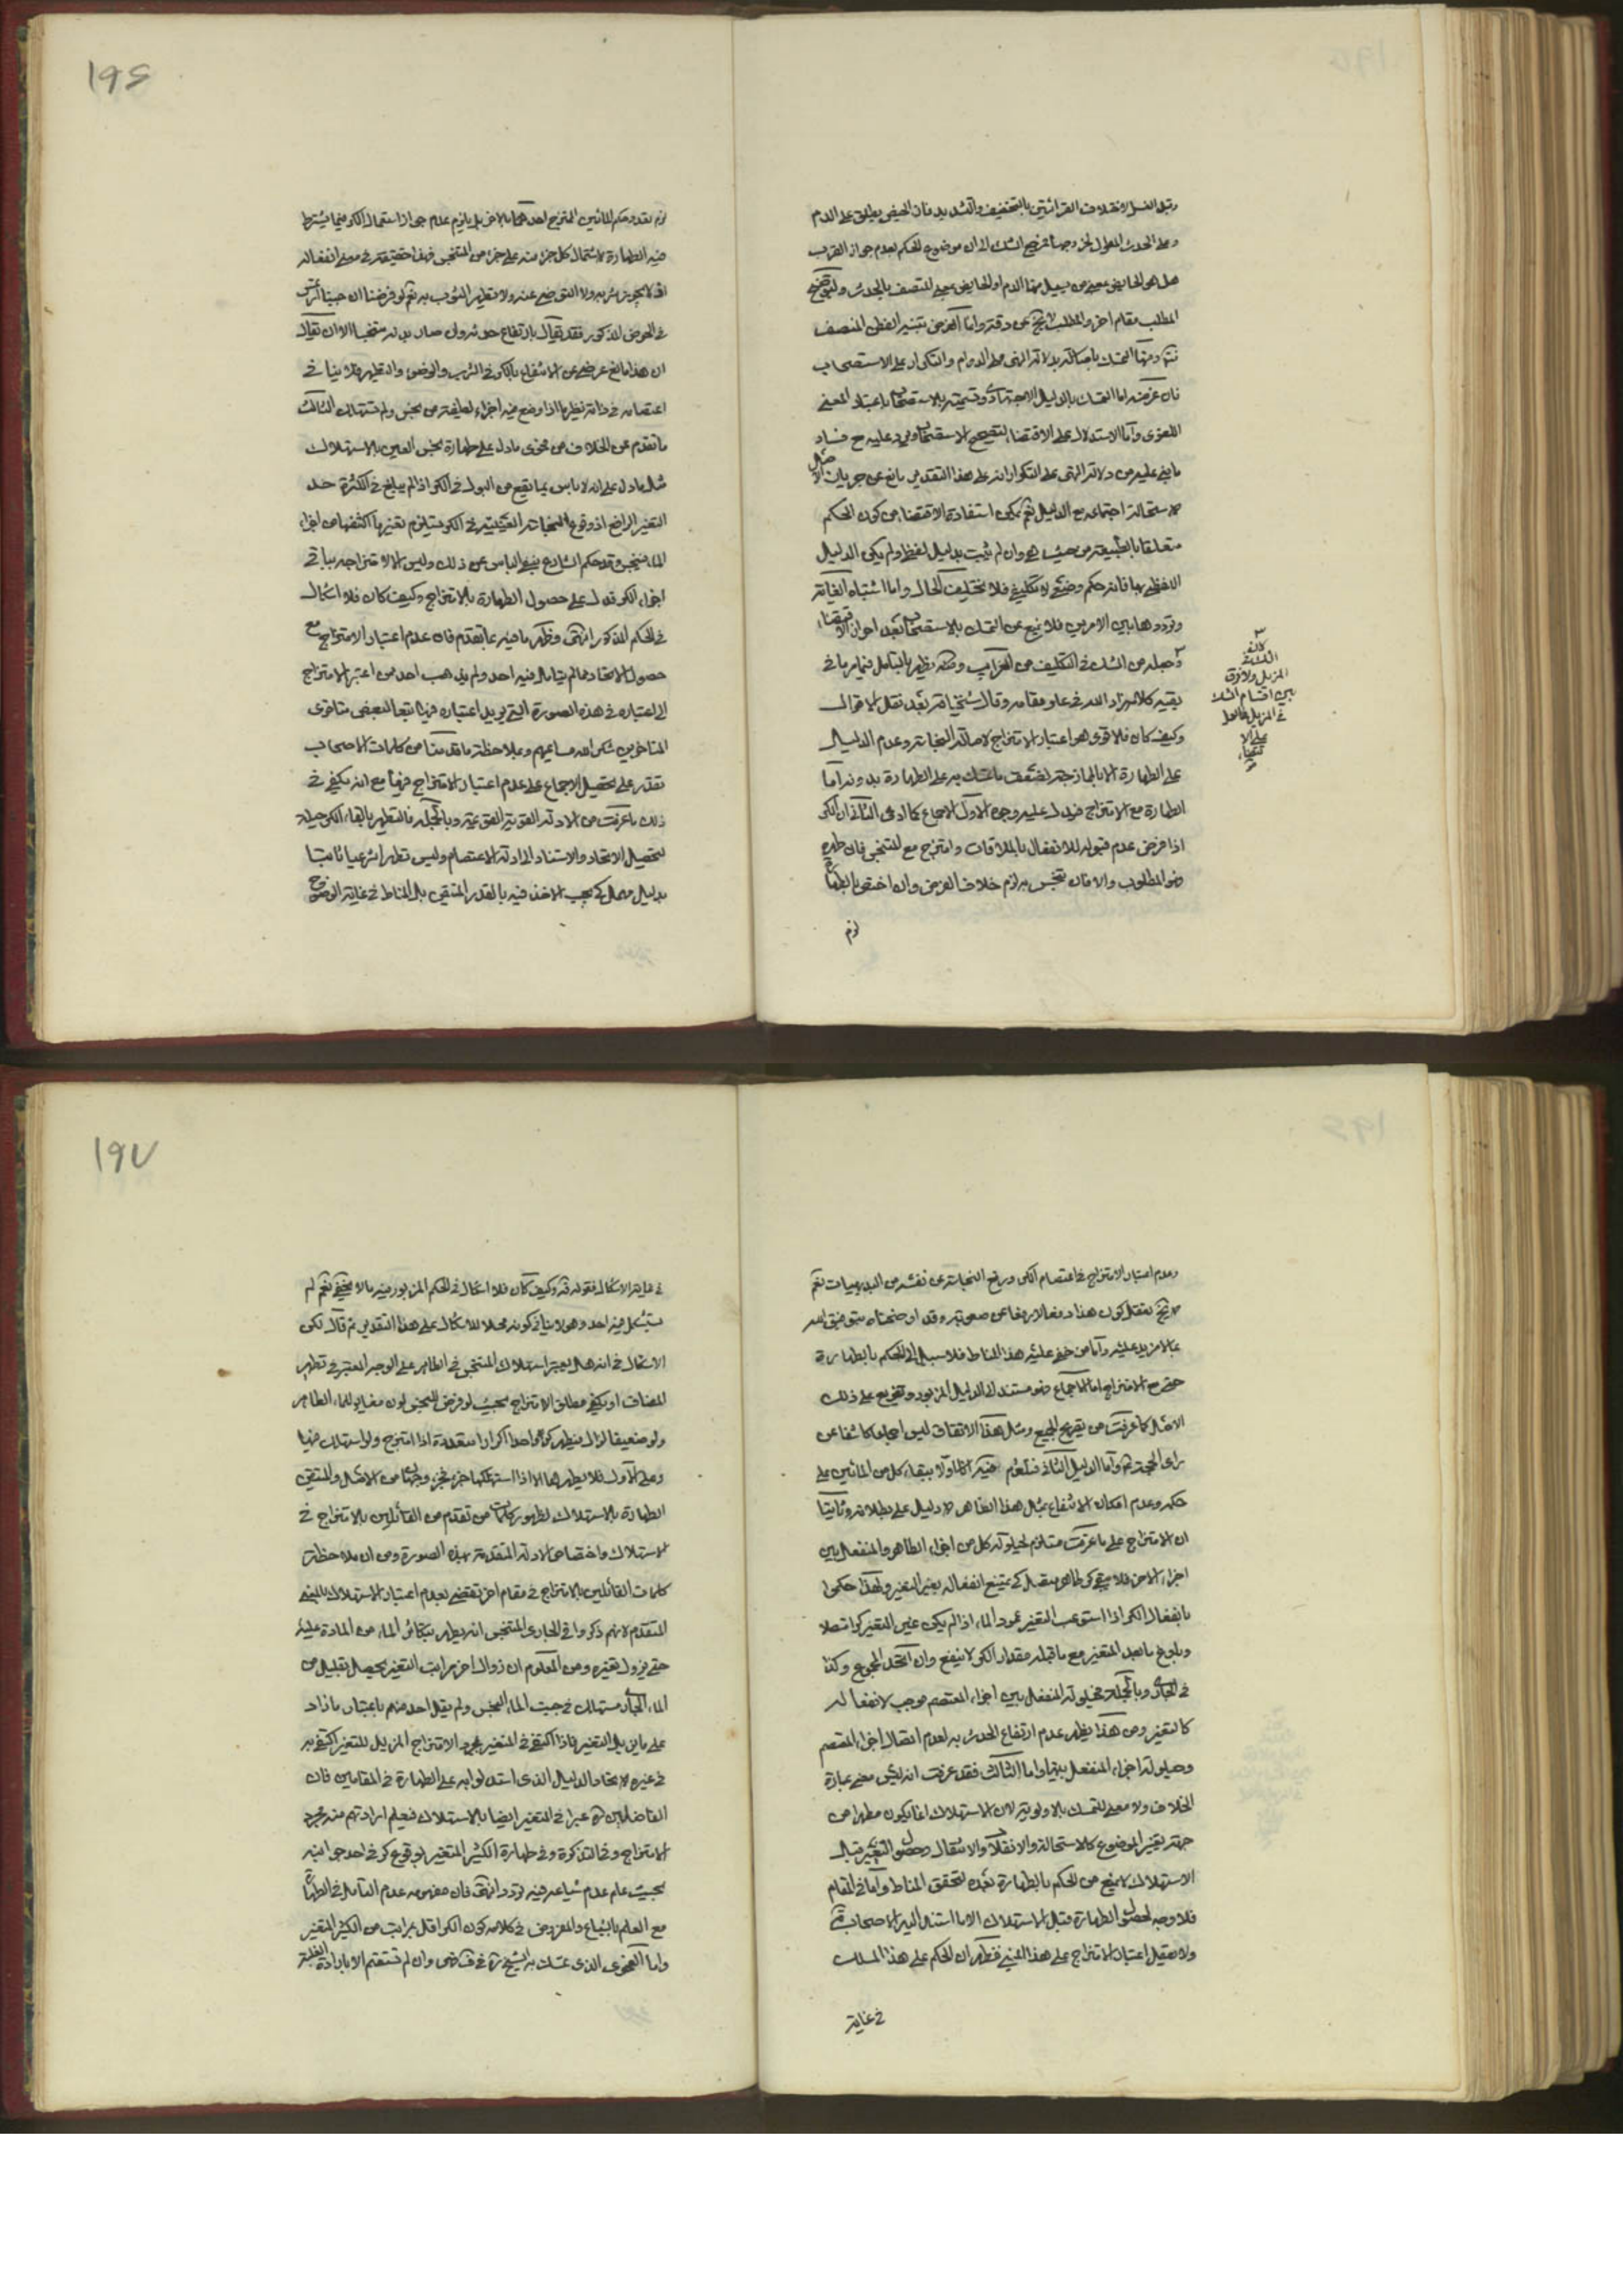 وقبل الغسل لاختلاف القرائتين بالتخفيف والتشديد فان الحيض يطلق على الدم
وعلى الحدث المعلول لخروجه فمرجع الشك الى ان موضوع الحكم بعدم جواز القرب
هل هي الحايض بمعنى من يسيل منها الدم او الحايض بمعنى المتصف بالحدث ولتوضيح
المطلب مقام اخر والمطلب لا يخ عن دقة واما الغرض تنبيه الفطن المنصف
ومنها التمسك باصالة بدلالة النهى على الدوام والتكرار على الاستصحاب
فان غرضه اما التمسك بالدليل الاجتهادى وتسميته بالاستصحاب باعتبار المعنى
اللغوى واما الاستدلال على الاقتضا لتصحيح الاستصحاب ويرد عليه ح فساد
ما بنى عليه من دلالة النهى على التكرار انه على هذا التقدير مانع عن جريان الاصل
لاستحالة اجتماعه مع الدليل نعم يمكن استفادة الاقتضا من كون الحكم
متعلقا بالطبيعة من حيث هى وان لم يثبت بدليل لفظى ولم يكن الدليل
اللفظى بها فانه حكم وضعى لا تكليفى فلا يختلف الحال واما اشتباه الغاية
وترددها بين الامرين فلا يمنع عن التمسك بالاستصحاب بعد احراز الاقتضاء
وجعله من الشك فى التكليف من الغرايب وضعفه يظهر بالتامل فيما مر ما فى
بقية كلامه زاد الله فى علو مقامه وقال شيخنا بعد نقل الاقوال
وكيف كان فلا قوى هو اعتبار الامتزاج لاصالة النجاسة وعدم الدليل
على الطهارة الا بالمازجة لضعف ما تمسك به على الطهارة بدونه اما
الطهارة مع الامتزاج فيدل عليه وجوه الاول الاجماع كما ادعى الثانى ان الكر
اذا فرض عدم قبوله للانفعال بالملاقات وامتزج مع المتنجس فان طهره
فهو المطلوب والا فان تنجس به لزم خلاف الفرض وان اختص بالطهارة
لزم
كالشك
المزيل ولا فرق
بين اقسام الشك
فى المزيل
على الا
قتضاء
١٩٦
لزم تعدد حكم المائين الممتزج احدهما بالاخر بل يلزم عدم جواز استعمال الكر فيما يشترط
فيه الطهارة لاشتمال كل جزء منه على جزء من المتنجس فهذا حقيقة فى معنى انفعاله
اذ لا يجوز شربه ولا التوضى عنه ولا تطهير الثوب به نعم لو فرضنا ان جنبا ارتمس
فى الحوض المذكور فقد يقال بارتفاع حدثه وان صار بدنه متنجسا الا ان يقال
ان هذا مانع عرضى عن الانتفاع بالكر فى الشرب والوضوء والتطهير فلا ينافى
اعتصامه فى ذاته نظير ما اذا وضع فيه اجزاء لطيفة من نجس ولم تستهلك الثالث
ما تقدم عن الخلاف من فحوى ما دل على طهارة نجس العين بالاستهلاك
مثل ما دل على انه لا باس بما يقع من البول فى الكر اذا لم يبلغ فى الكثرة حد
التغير الرافع اذ وقوع النجاسة العينية فى الكر يستلزم تغيرها اكتنفها من اجزاء
الماء فينجس وقد حكم الشارع بنفى الباس عن ذلك وليس الا لامتزاجه بباقى
اجزاء الكر فدل على حصول الطهارة بالامتزاج وكيف كان فلا اشكال
فى الحكم المذكور انتهى وظهر ما فيه مما تقدم فان عدم اعتبار الامتزاج مع
حصول الاتحاد مما لم يتامل فيه احد ولم يذهب احد ممن اعتبر الامتزاج
الى اعتباره فى هذه الصورة التى يريد اعتباره فيها تبعا لبعض متاخرى
المتاخرين شكر الله مساعيهم وبملاحظة ما قدمنا من كلمات الاصحاب
تقدر على تحصيل الاجماع على عدم اعتبار الامتزاج فيها مع انه يكفى فى
ذلك ما عرفت من الادلة القوية الغوية وبالجملة فالتطهير بالقاء الكر حيلة
لتحصيل الاتحاد والاستناد الى ادلة الاعتصام وليس تطهيرا شرعيا ثابتا
بدليل مجمل كى يجب الاخذ فيه بالقدر المتيقن بل المناط فى غاية الوضوح
وعدم اعتبار الامتزاج فى اعتصام الكر ورفع النجاسة عن نفسه من البديهيات نعم
لا يخ تعقل كون هذا دفعا لا رفعا عن صعوبة وقد اوضحناه بتوفيق الله
بما لا مزيد عليه واما من خفى عليه هذا المناط فلا سبيل له الى الحكم بالطهارة
حتى مع الامتزاج اما الاجماع فهو مستند الى الدليل المزبور وتفريع على ذلك
الاصل كما عرفت من تصريح الجميع ومثل هذا الاتفاق ليس اجماعا كاشفا عن
راى الحجة ع واما الدليل الثانى فنلتزم فيه اولا ببقاء كل من المائين على
حكمه وعدم امكان الانتفاع بمثل هذا الطاهر لا دليل على بطلانه وثانيا
ان الامتزاج على ما عرفت مستلزم لحيلولة كل من اجزاء الطاهر والمنفعل بين
اجزاء الاخر فلا يبقى كر طاهر متصل كى يمتنع انفعاله بغير التغير ولهذا حكموا
بانفعال الكر اذا استوعب التغير عمود الماء اذا لم يكن غير المتغير كرا متصلا
وبلوغ ما بعد المتغير مع ما قبله مقدار الكر لا ينفع وان اتحد المجموع وكذا
فى الجارى وبالجملة فحيلولة المنفعل بين اجزاء المعتصم موجب لانفعاله
كالتغير ومن هذا يظهر عدم ارتفاع الحدث به لعدم اتصال اجزاء المعتصم
وحيلولة اجزاء المنفعل بينها واما الثالث فقد عرفت انه ليس معنى عبارة
الخلاف ولا معنى للتمسك بالاولوية لان الاستهلاك انما يكون مطهرا من
جهة تغير الموضوع كالاستحالة والانقلاب والانتقال وحصول التغير قبال
الاستهلاك لا يمنع من الحكم بالطهارة بعده لتحقق المناط واما فى المقام
فلا وجه لحصول الطهارة قبل الاستهلاك الا ما استند اليه الاصحاب ره
ولا يعقل اعتبار الامتزاج على هذا المبنى فظهر ان الحكم على هذا المسلك
فى غاية
١٩٧
فى غاية الاشكال فقوله قه وكيف كان فلا اشكال فى الحكم المزبور فيه ما لا يخفى نعم لم
يستشكل فيه احد وهو لا ينافى كونه محلا للاشكال على هذا التقدير ثم قال لكن
الاشكال فى انه هل يعتبر استهلاك المتنجس فى الطاهر على الوجه المعتبر فى تطهير
المضاف او يكفى مطلق الامتزاج بحيث لو فرض للنجس لون مغاير للماء الطاهر
ولو ضعيفا لزال فيطهر كر واحد اكرارا متعددة اذا امتزج ولو استهلك فيها
وعلى الاول فلا يطهر بها الا اذا استهلكها جزء فجزء وجهان من الاصل والمتيقن
الطهارة بالاستهلاك لظهور كلمات من تقدم من القائلين بالامتزاج فى
الاستهلاك واختصاص الادلة المتقدمة بهذه الصورة ومن ان ملاحظة
كلمات القائلين بالامتزاج فى مقام اخر تقتضى بعدم اعتبار الاستهلاك بالمعنى
المتقدم لانهم ذكروا فى الجارى المتنجس انه يطهر بتكاثر الماء من المادة عليه
حتى يزول تغيره ومن المعلوم ان زوال اخر مراتب التغير يحصل بقليل من
الماء الجارى مستهلك فى جنب الماء النجس ولم يقل احد منهم باعتبار ما زاد
على ما يزيل التغير فاذا اكتفى فى المتغير بمجرد الامتزاج المزيل للتغير اكتفى به
فى غيره لاتحاد الدليل الذى استدلوا به على الطهارة فى المقامين فان
الفاضلين ره عبرا فى التغير ايضا بالاستهلاك فيعلم ارادتهم منه مجرد
الامتزاج وفى التذكرة وفى طهارة الكثير المتغير بوقوع كر فى احد جوانبه
بحيث علم عدم شياعه فيه تردد انتهى فان مفهومه عدم التامل فى الطهارة
مع العلم بالشياع والمفروض فى كلامه كون الكر اقل بمراتب من الكثير المتغير
واما الفحوى الذى تمسك به الشيخ ره فى ف فهى وان لم تستقم الا بارادة الغلبة